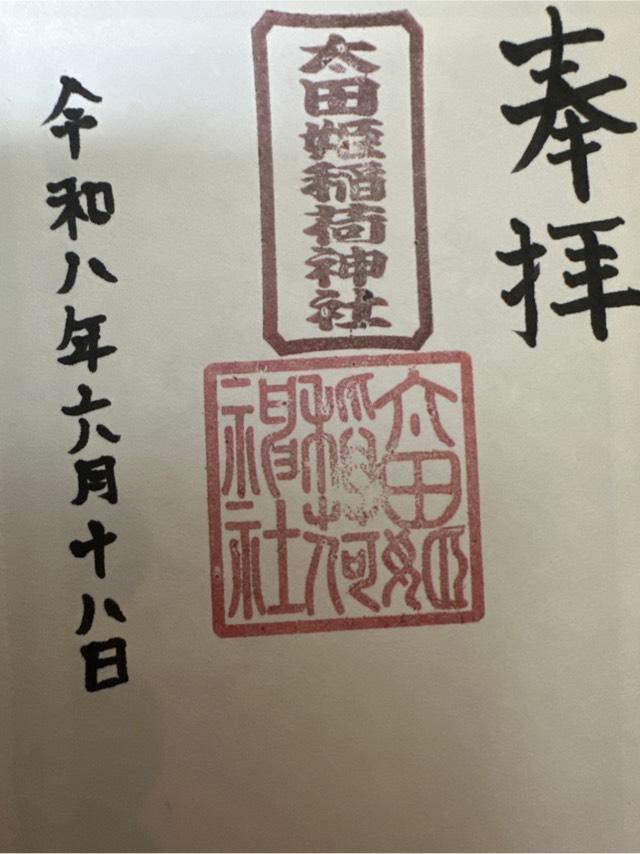 奉拝
太田姫稲荷神社
太田姫
稲荷
神社
令和八年六月十八日